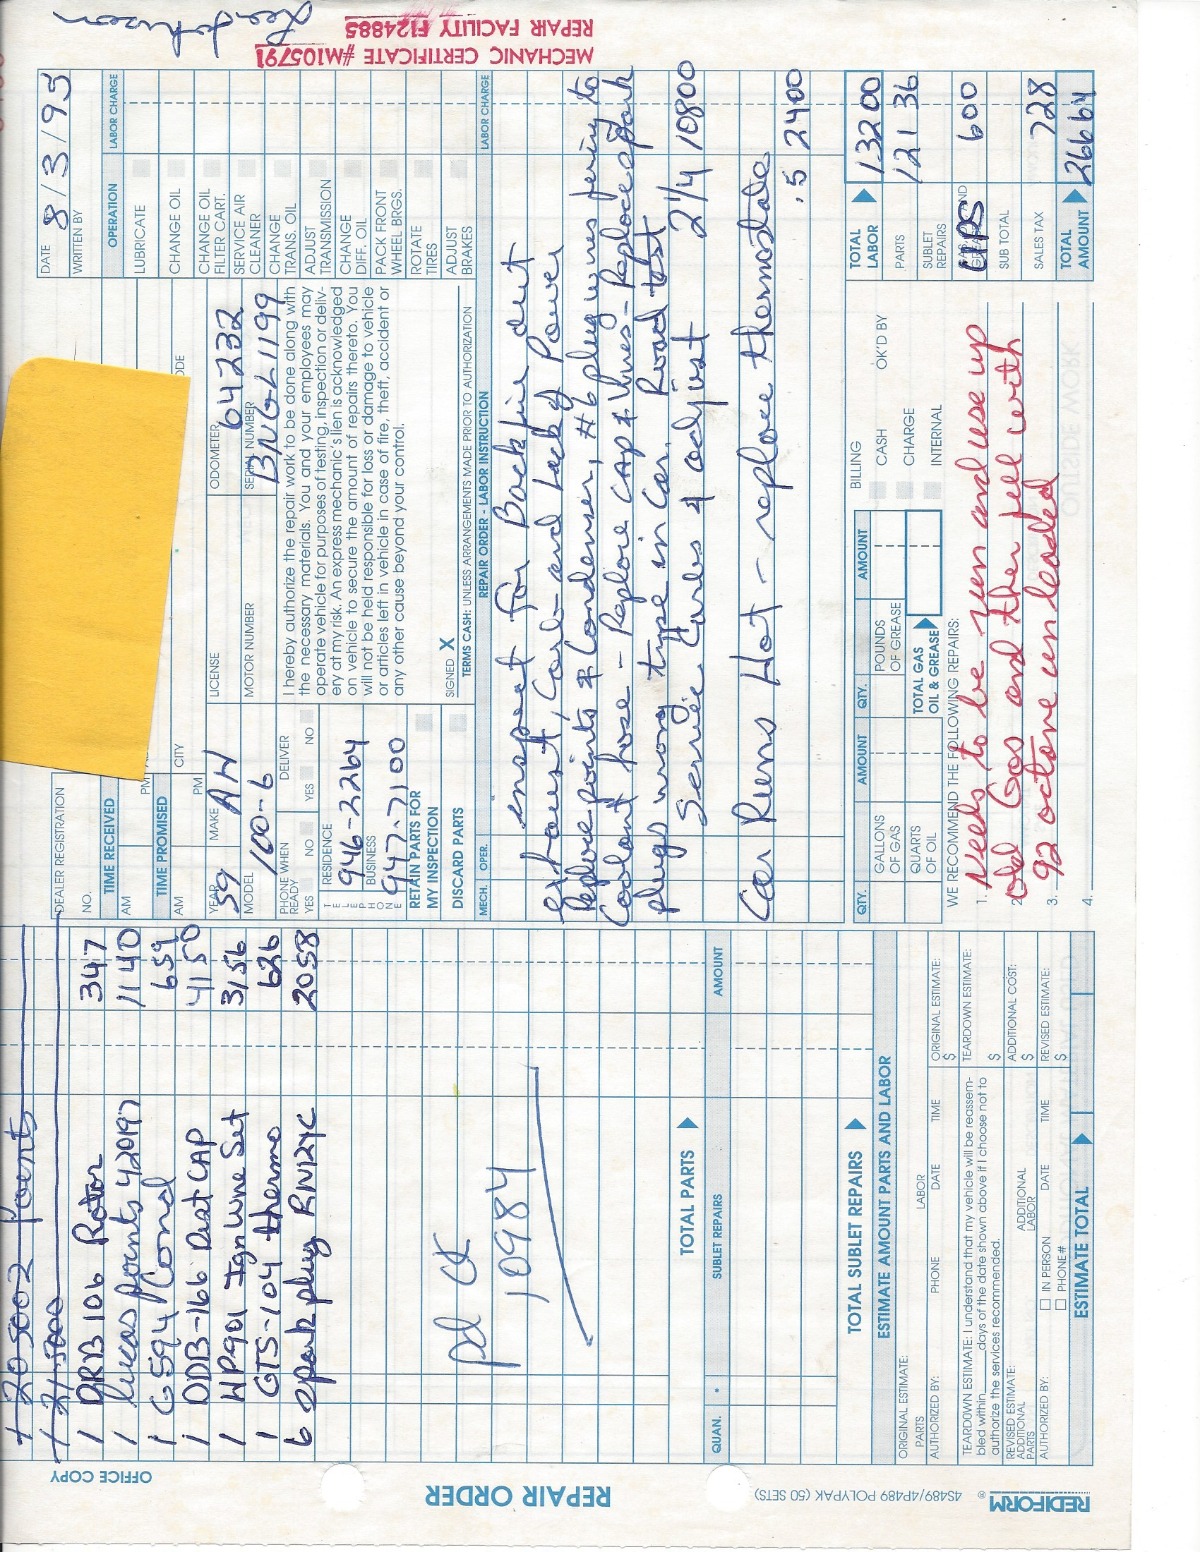 MECHANIC CERTIFICATE #M105791
REPAIR FACILITY F124885
OFFICE COPY
REPAIR ORDER
4S489/4P489 POLYPAK (50 SETS)
REDIFORM ®
1 205002 Points
1 DRB 106 Rotor 347
1 Lucas points 42097 1140
1 G594 Cond 659
1 ODB-166 Dist CAP 4150
1 WP901 Ign Wire Set 3156
1 GTS-104 thermo 626
6 Spark plug RN12YC 2058
pd CK
10984
TOTAL PARTS
QUAN. SUBLET REPAIRS AMOUNT
TOTAL SUBLET REPAIRS
ESTIMATE AMOUNT PARTS AND LABOR
ORIGINAL ESTIMATE:
PARTS LABOR
ORIGINAL ESTIMATE:
$
AUTHORIZED BY: PHONE DATE TIME
TEARDOWN ESTIMATE: I understand that my vehicle will be reassem-
bled within ___ days of the date shown above if I choose not to
authorize the services recommended.
TEARDOWN ESTIMATE:
$
REVISED ESTIMATE:
ADDITIONAL PARTS ADDITIONAL LABOR
ADDITIONAL COST:
$
AUTHORIZED BY: IN PERSON PHONE# DATE TIME
REVISED ESTIMATE:
$
ESTIMATE TOTAL
DEALER REGISTRATION
NO.
DATE 8/3/95
WRITTEN BY
TIME RECEIVED
AM PM
TIME PROMISED
AM PM
CITY
YEAR 59 MAKE AH LICENSE ODOMETER 64232
MODEL 100-6 MOTOR NUMBER SERIAL NUMBER BN6L1199
PHONE WHEN READY YES NO
DELIVER YES NO
TELEPHONE
RESIDENCE
946-2264
BUSINESS
947-7100
RETAIN PARTS FOR
MY INSPECTION
DISCARD PARTS
I hereby authorize the repair work to be done along with
the necessary materials. You and your employees may
operate vehicle for purposes of testing, inspection or deliv-
ery at my risk. An express mechanic's lien is acknowledged
on vehicle to secure the amount of repairs thereto. You
will not be held responsible for loss or damage to vehicle
or articles left in vehicle in case of fire, theft, accident or
any other cause beyond your control.
SIGNED X
TERMS CASH: UNLESS ARRANGEMENTS MADE PRIOR TO AUTHORIZATION
OPERATION LABOR CHARGE
LUBRICATE
CHANGE OIL
CHANGE OIL
FILTER CART.
SERVICE AIR
CLEANER
CHANGE
TRANS. OIL
ADJUST
TRANSMISSION
CHANGE
DIFF. OIL
PACK FRONT
WHEEL BRGS.
ROTATE
TIRES
ADJUST
BRAKES
MECH. OPER. REPAIR ORDER - LABOR INSTRUCTION LABOR CHARGE
inspect for Backfire out
exhaust, Carb - and Lack of Power
Replace points & Condenser, #6 plug wires
Coolant hose - Replace CAP & Wires - Replace spark
plugs wrong type in Car. Road test
Service Carbs & adjust 2 1/4 10800
Car Runs Hot - replace thermostate
.5 2400
QTY. AMOUNT QTY. AMOUNT
GALLONS
OF GAS
POUNDS
OF GREASE
QUARTS
OF OIL
TOTAL GAS
OIL & GREASE
BILLING
CASH OK'D BY
CHARGE
INTERNAL
WE RECOMMEND THE FOLLOWING REPAIRS:
1. Needs to be run and use up
2. old Gas and then fill with
3. 92 octane un leaded
4.
TOTAL
LABOR 13200
PARTS 121 36
SUBLET
REPAIRS
UPS 600
SUB TOTAL
SALES TAX 728
TOTAL
AMOUNT 26664
OUTSIDE WORK